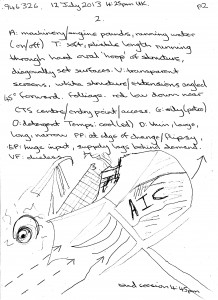 12 July 2013 4:25pm UK. p2
2
A: machinery/engine pounds, running water
(on/off) T: soft, pliable length running
through hard oval 'hoop' of structure,
diagonally set surfaces. V: transparent
screens, white structure/extensions angled
45° forward. Foliage. red, low down near
CTS centre/entry point/access. G: oily (petrol)
O: detergent Temps: cool (ed) D: thin, large,
long, narrow PP: at edge of change/flipsy,
EP: huge input, supply lags behind demand.
VF:
AIC
end session 4:45pm